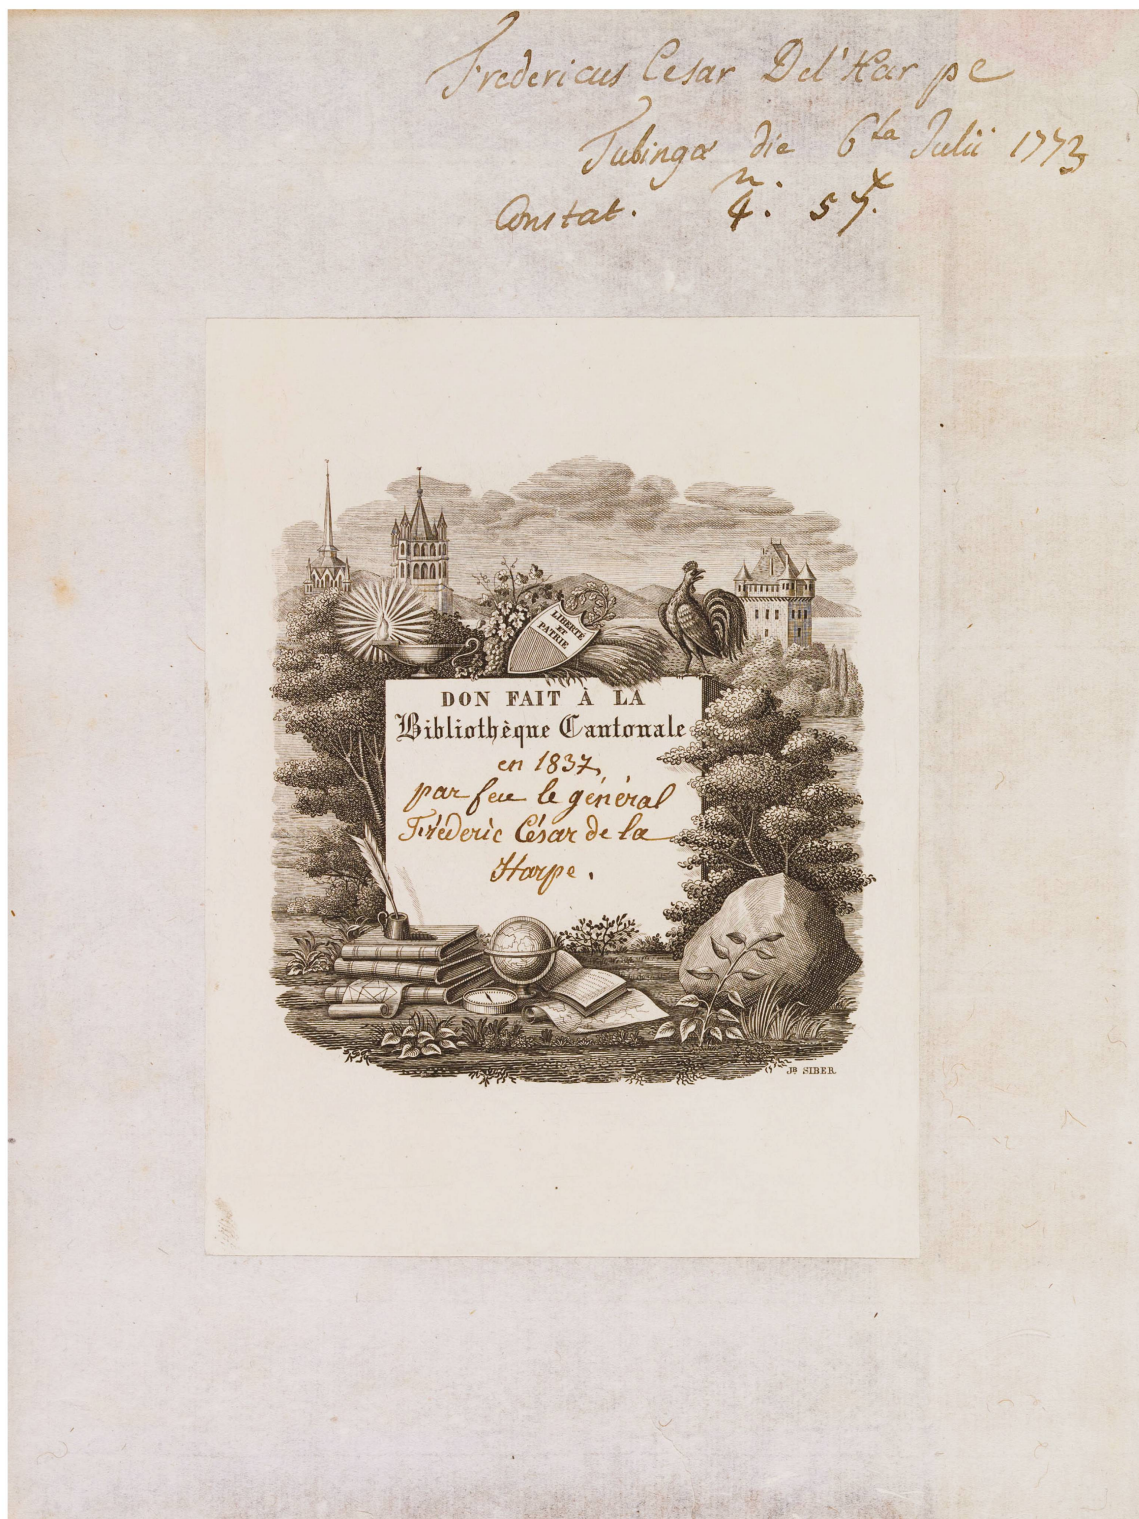 Fredericus Cesar Del'Harpe
Tubingæ die 6ta Julii 1773
Constat. 4. 57.
LIBERTÉ
ET
PATRIE
DON FAIT À LA
Bibliothèque Cantonale
en 1837,
par feu le général
Fréderic César de la
Harpe.
JB SIBER